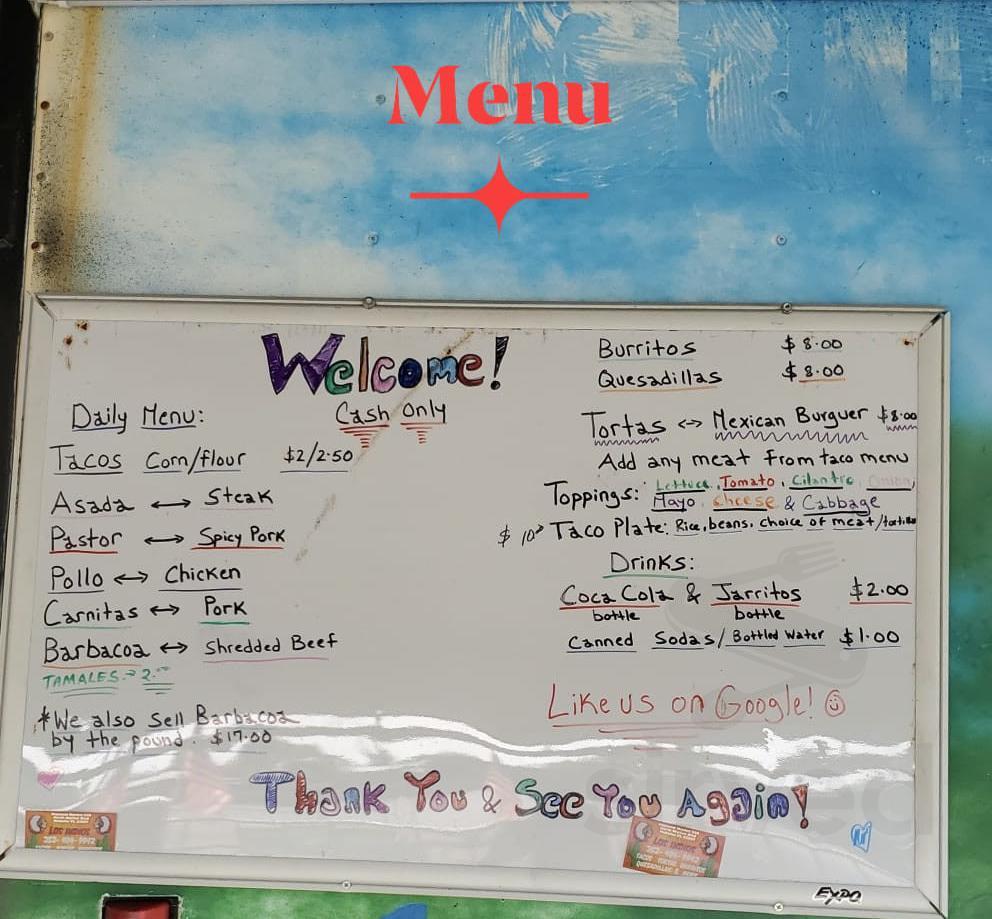 Menu
Welcome!
Cash Only
Daily Menu:
Tacos Corn/flour $2/2.50
Asada ↔ Steak
Pastor ↔ Spicy Pork
Pollo ↔ Chicken
Carnitas ↔ Pork
Barbacoa ↔ Shredded Beef
TAMALES → 2.00
*We also Sell Barbacoa
by the pound. $17.00
Burritos $8.00
Quesadillas $8.00
Tortas ↔ Mexican Burguer $8.00
Add any meat from taco menu
Toppings: Lettuce, Tomato, Cilantro, Onion,
Mayo, cheese & Cabbage
$10 Taco Plate: Rice, beans, choice of meat/tortillas
Drinks:
Coca Cola & Jarritos $2.00
bottle bottle
Canned Sodas/Bottled Water $1.00
Like us on Google!
Thank You & See You Again!
LOS INDIOS
LOS INDIOS
EXPO